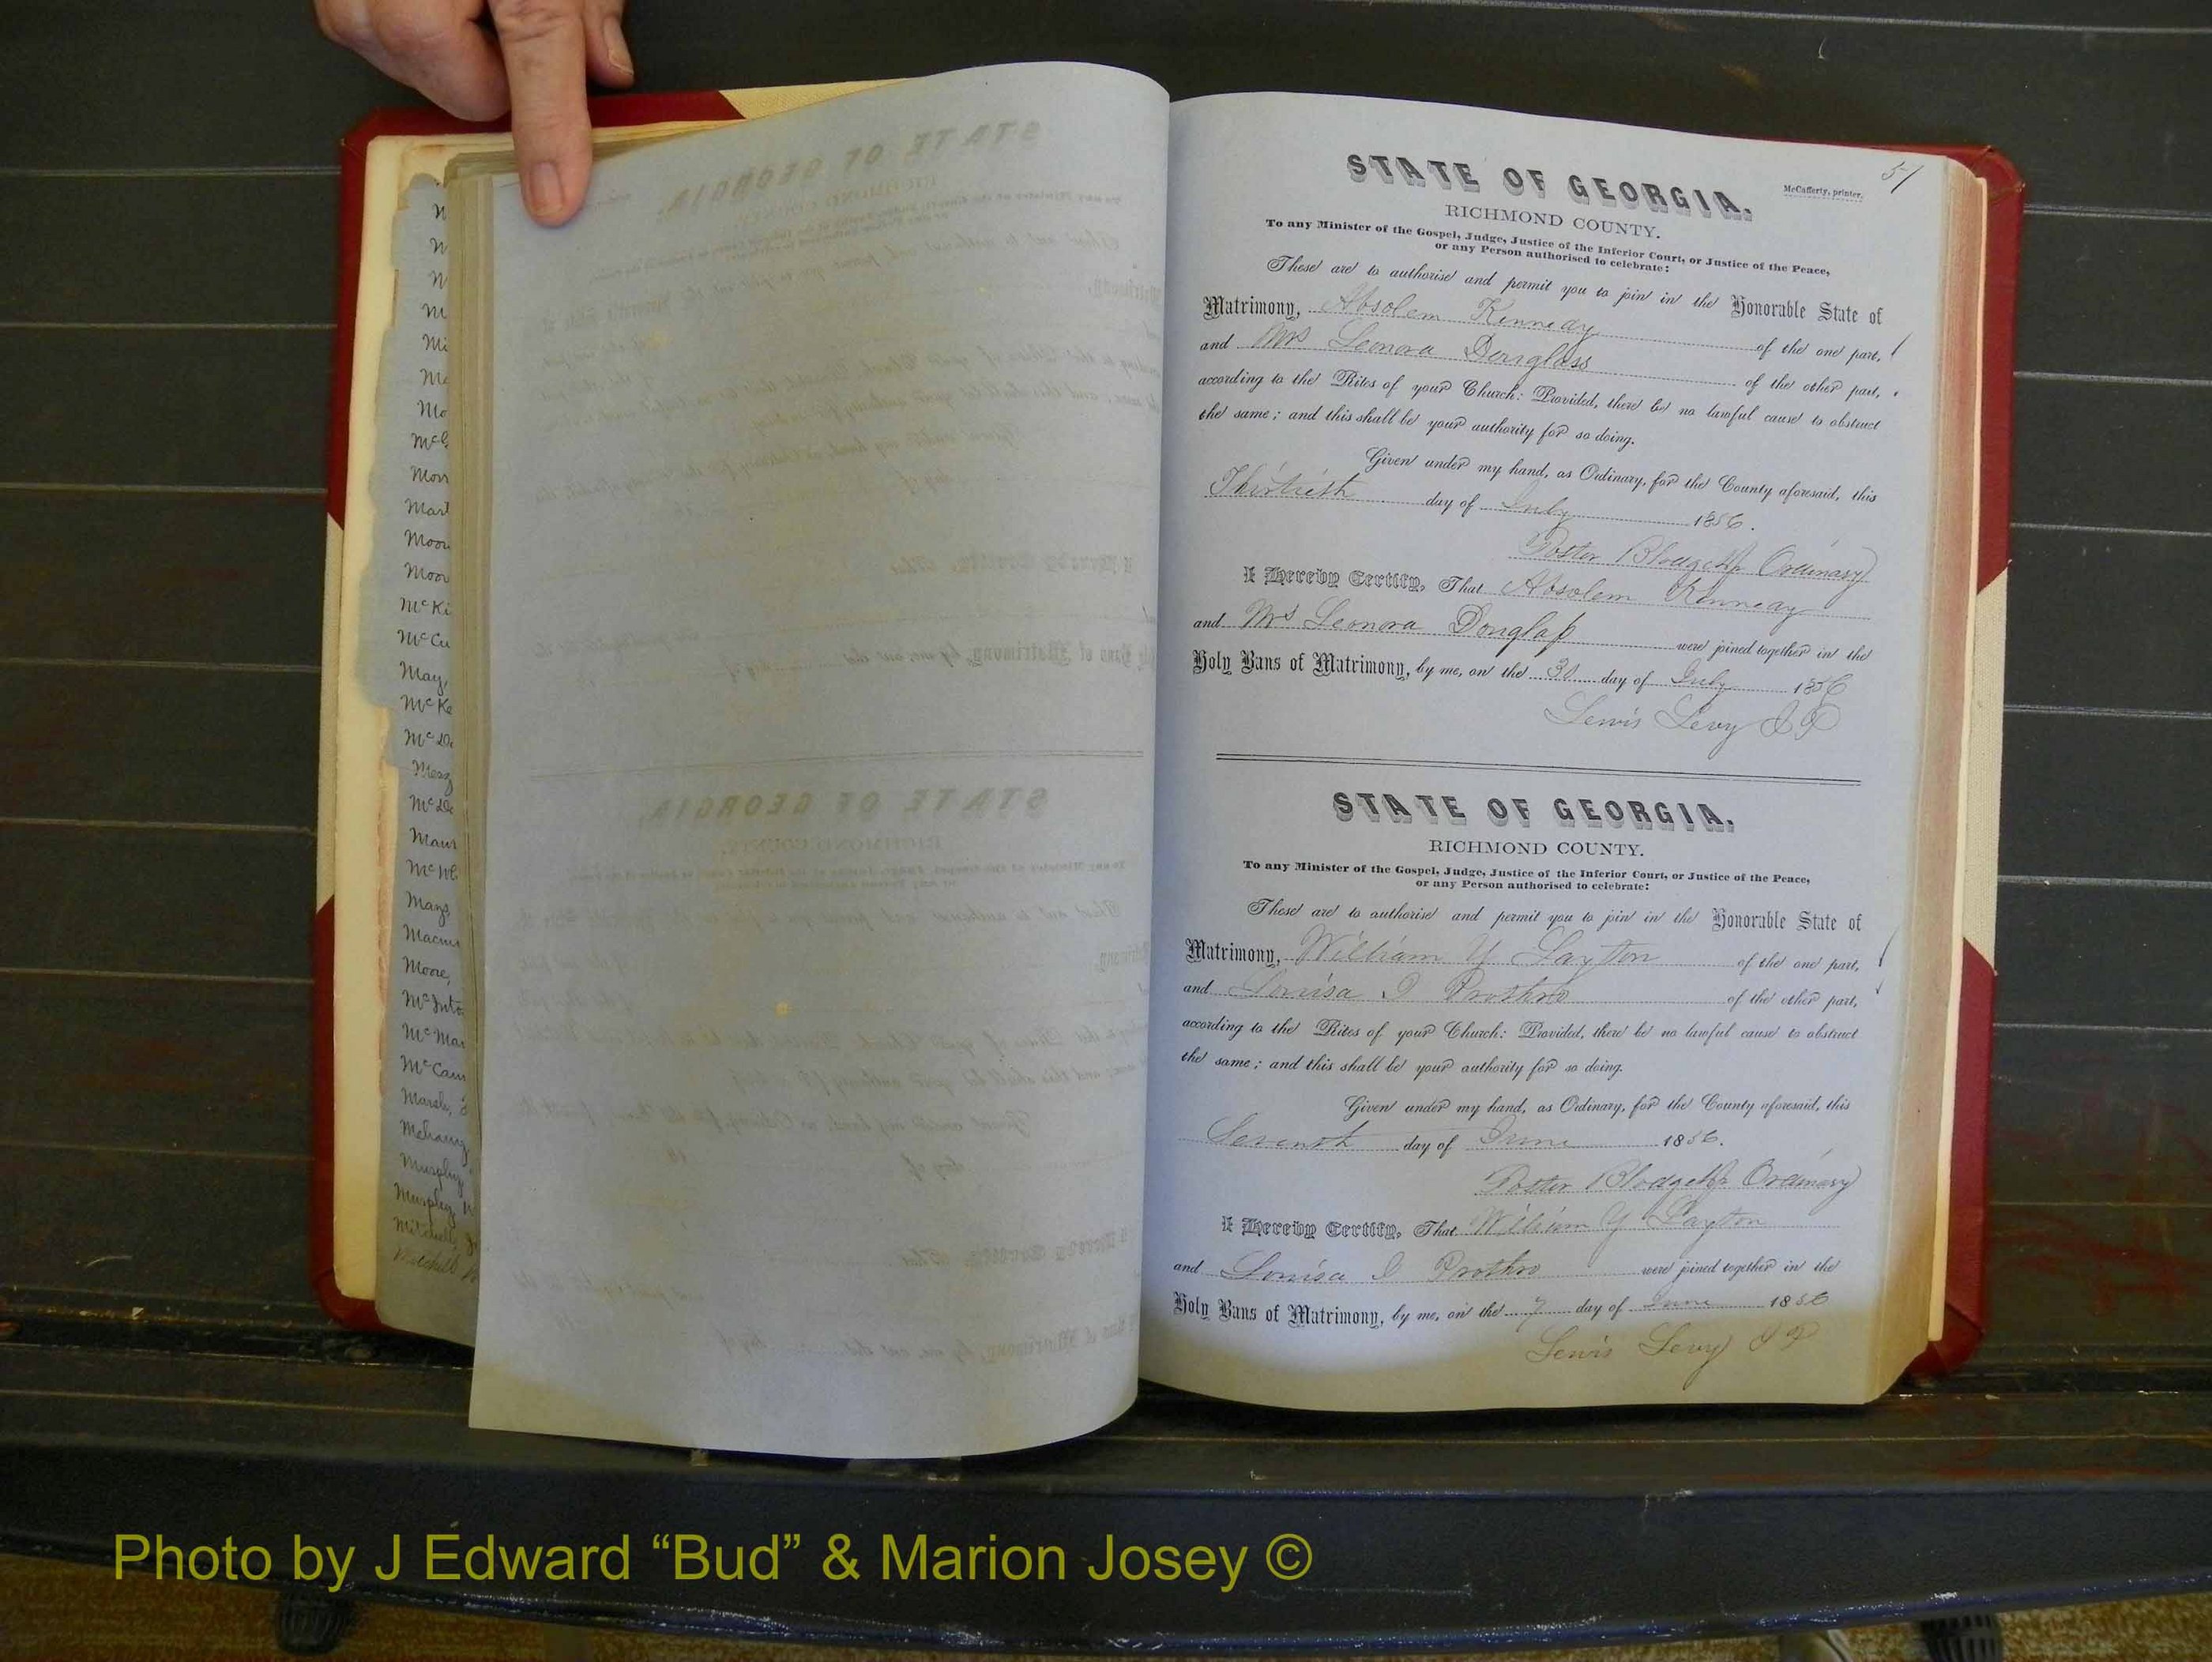 STATE OF GEORGIA.
McCafferty, printer.
51
RICHMOND COUNTY.
To any Minister of the Gospel, Judge, Justice of the Inferior Court, or Justice of the Peace,
or any Person authorised to celebrate:
These are to authorise and permit you to join in the Honorable State of
Matrimony, Absolem Kennedy of the one part,
and Mrs Leonora Douglass of the other part,
according to the Rites of your Church: Provided, there be no lawful cause to obstruct
the same; and this shall be your authority for so doing.
Given under my hand, as Ordinary, for the County aforesaid, this
Thirtieth day of July 1856.
Foster Blodget Jr Ordinary
I Hereby Certify, That Absolem Kennedy
and Mrs Leonora Douglass were joined together in the
Holy Bans of Matrimony, by me, on the 30 day of July 1856
Lewis Levy J P
STATE OF GEORGIA.
RICHMOND COUNTY.
To any Minister of the Gospel, Judge, Justice of the Inferior Court, or Justice of the Peace,
or any Person authorised to celebrate:
These are to authorise and permit you to join in the Honorable State of
Matrimony, William Y Layton of the one part,
and Louisa I Prothro of the other part,
according to the Rites of your Church: Provided, there be no lawful cause to obstruct
the same; and this shall be your authority for so doing.
Given under my hand, as Ordinary, for the County aforesaid, this
Seventh day of June 1856.
Foster Blodget Jr Ordinary
I Hereby Certify, That William Y Layton
and Louisa I Prothro were joined together in the
Holy Bans of Matrimony, by me, on the 7 day of June 1856
Lewis Levy J P
Photo by J Edward “Bud” & Marion Josey ©